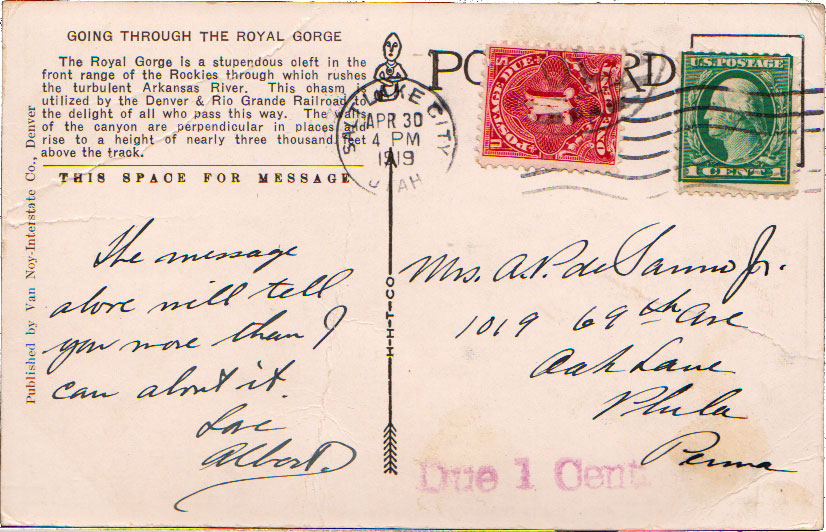 GOING THROUGH THE ROYAL GORGE
The Royal Gorge is a stupendous cleft in the
front range of the Rockies through which rushes
the turbulent Arkansas River. This chasm
utilized by the Denver & Rio Grande Railroad to
the delight of all who pass this way. The walls
of the canyon are perpendicular in places and
rise to a height of nearly three thousand feet
above the track.
THIS SPACE FOR MESSAGE
Published by Van Noy-Interstate Co., Denver
The message
above will tell
you more than I
can about it.
Love
Albert.
H-H-T-CO
POSTCARD
SALT LAKE CITY
APR 30
4 PM
1919
UTAH
POSTAGE DUE
ONE CENT
U.S. POSTAGE
1 CENT 1
Mrs. A.P. de Sanno Jr.
1019 69th Ave
Oak Lane
Phila
Penna
Due 1 Cent